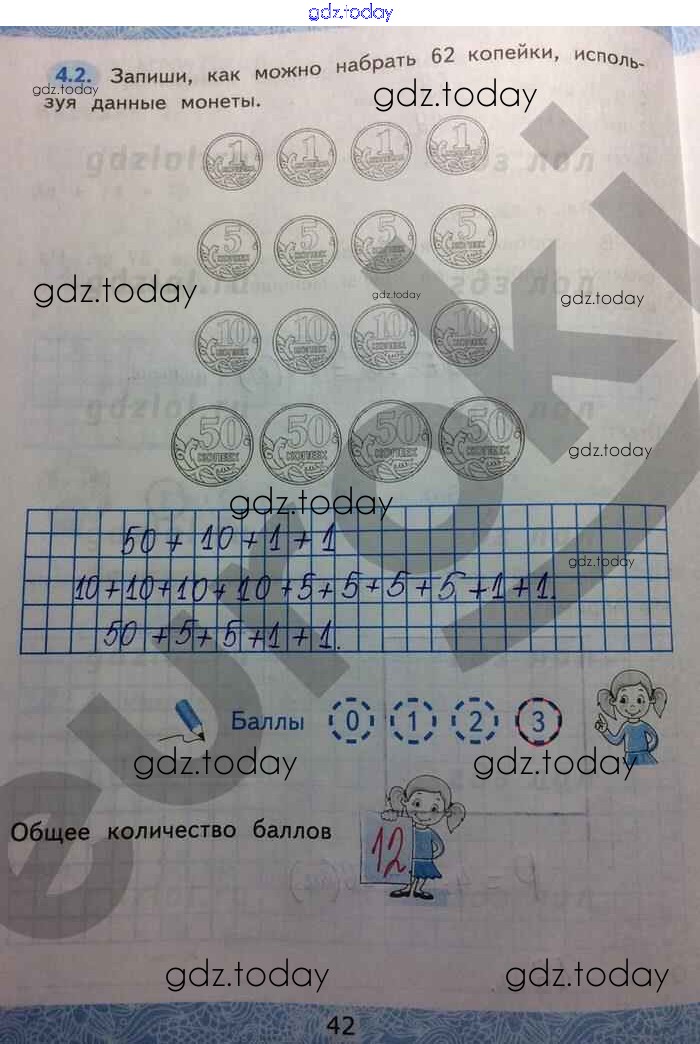 gdz.today
4.2. Запиши, как можно набрать 62 копейки, исполь-
зуя данные монеты.
gdz.today
gdz.today
1 1 1 1
5 КОПЕЕК 5 КОПЕЕК 5 КОПЕЕК 5 КОПЕЕК
gdz.today gdz.today gdz.today
10 КОПЕЕК 10 КОПЕЕК 10 КОПЕЕК 10 КОПЕЕК
50 КОПЕЕК 50 КОПЕЕК 50 КОПЕЕК 50 КОПЕЕК
gdz.today
gdz.today
50 + 10 + 1 + 1
gdz.today
10+10+10+10+5+5+5+5+1+1.
50 +5+5+1+1.
Баллы 0 1 2 3
gdz.today gdz.today
Общее количество баллов 12
gdz.today gdz.today
42
euroki